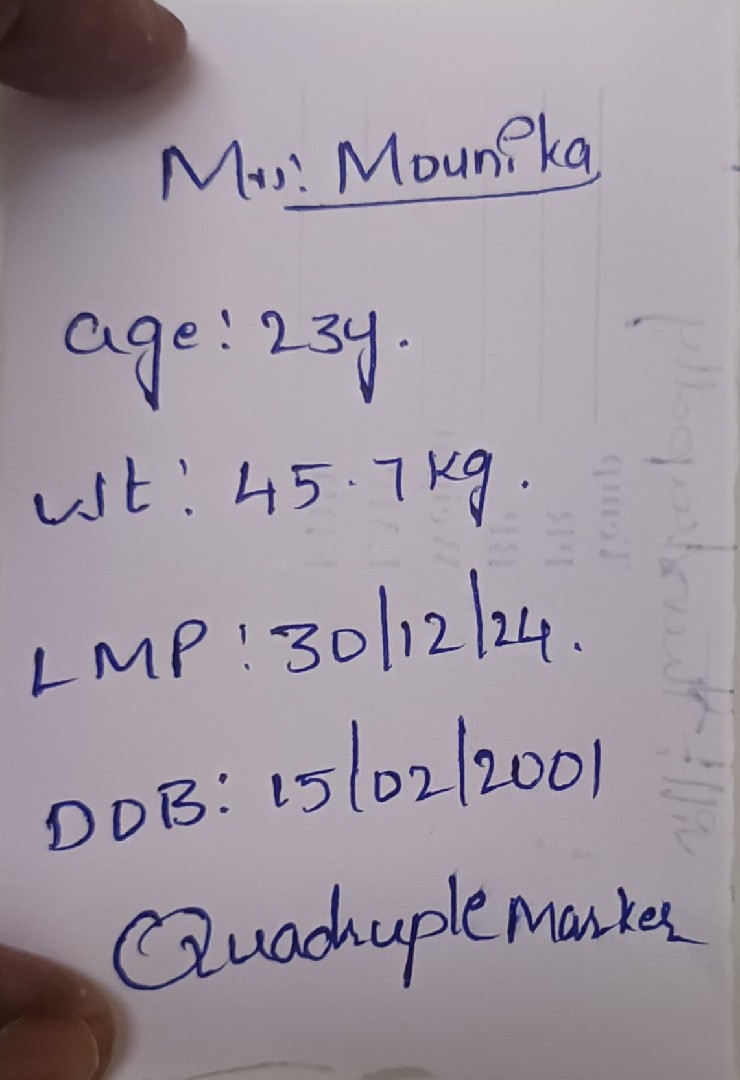 Mrs: Mounika
age: 23y.
wt: 45.7 kg.
LMP: 30/12/24.
DOB: 15/02/2001
Quadruple Marker
Temp
PR
BP